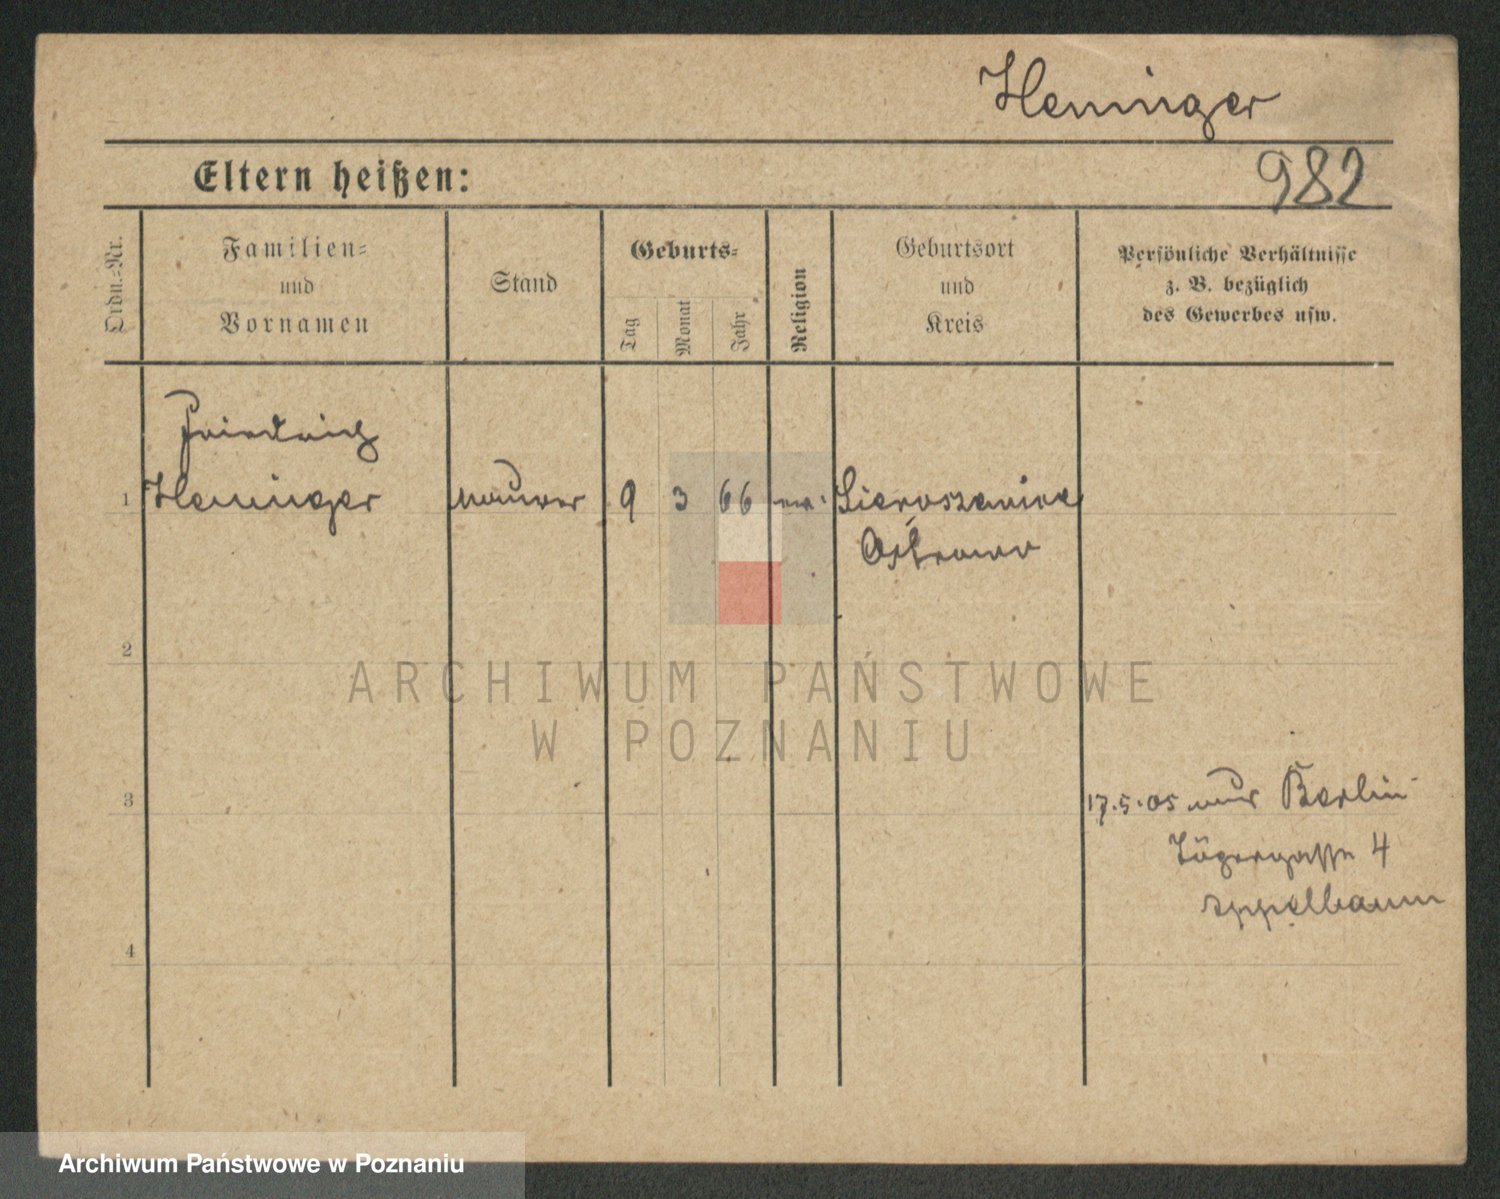 Heninger
Eltern heißen:
982
Ordn.-Nr.
Familien-
und
Vornamen
Stand
Geburts-
Tag
Monat
Jahr
Religion
Geburtsort
und
Kreis
Persönliche Verhältnisse
z. B. bezüglich
des Gewerbes usw.
Friedrich
1 Heninger Maurer 9 3 66 ev.
Ostrowo
2
3
17.5.05 Berlin
4
appelbaum
4
ARCHIWUM PAŃSTWOWE
W POZNANIU
Archiwum Państwowe w Poznaniu